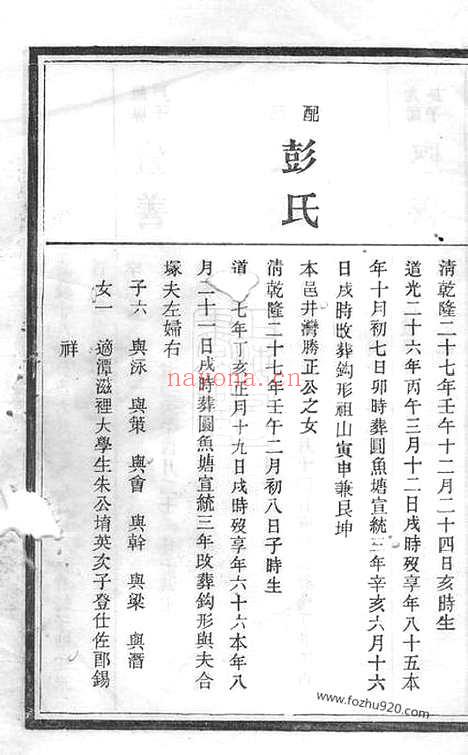 清乾隆二十七年壬午十二月二十四日亥時生
道光二十六年丙午三月十二日戌時歿享年八十五本
年十月初七日卯時葬圓魚塘宣統三年辛亥六月十六
日戌時改葬鈎形祖山寅申兼艮坤
配
彭氏
本邑井灣勝正公之女
清乾隆二十七年壬午二月初八日子時生
道 七年丁亥正月十九日戌時歿享年六十六本年八
月二十一日戌時葬圓魚塘宣統三年改葬鈎形與夫合
塚夫左婦右
子六 與泳 與策 與會 與幹 與梁 與潛
女一 適潭滋裡大學生朱公堉英次子登仕佐郎錫
祥
nayona.cn
www.fozhu920.com